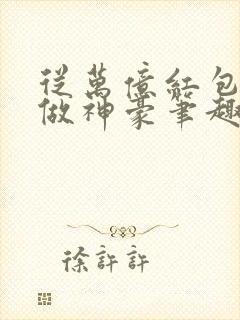 從萬億紅包
做神豪筆趣
徐許許